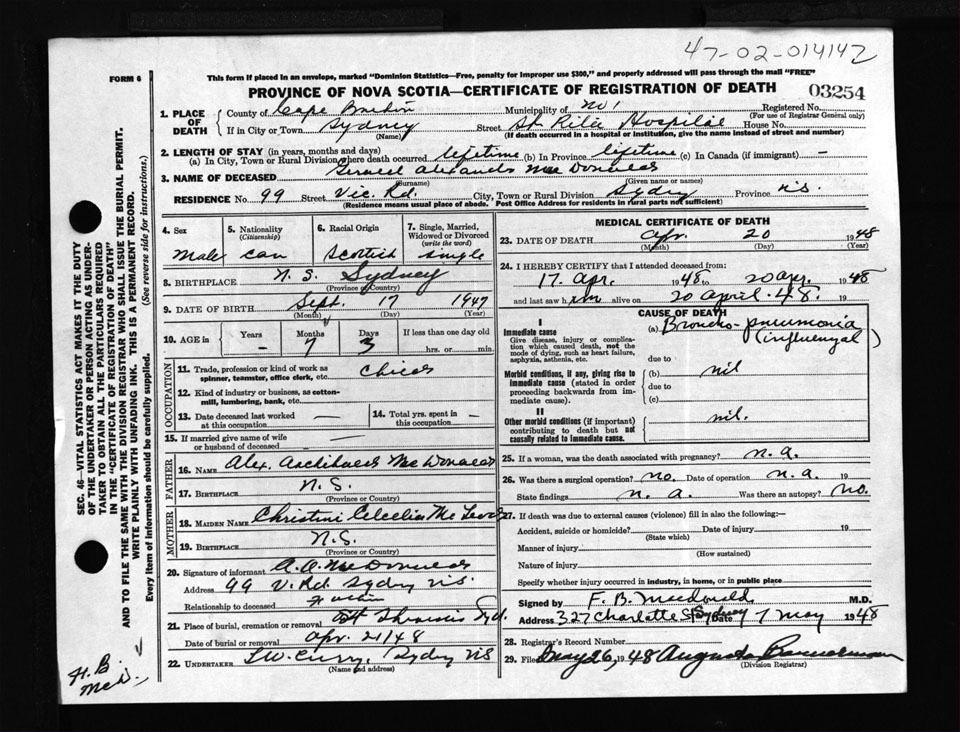 47-02-014142
FORM 6
This form if placed in an envelope, marked "Dominion Statistics—Free, penalty for improper use $300," and properly addressed will pass through the mail "FREE"
PROVINCE OF NOVA SCOTIA—CERTIFICATE OF REGISTRATION OF DEATH
03254
1. PLACE OF DEATH
County of Cape Breton Municipality of No 1 Registered No.
(For use of Registrar General only)
If in City or Town Sydney Street St. Rita Hospital House No.
(Name) (If death occurred in a hospital or institution, give the name instead of street and number)
2. LENGTH OF STAY (in years, months and days)
(a) In City, Town or Rural Division where death occurred lifetime (b) In Province lifetime (c) In Canada (if immigrant) —
3. NAME OF DECEASED Alexander Mac Donald
(Surname) (Given name or names)
RESIDENCE No. 99 Street Vic. Rd. City, Town or Rural Division Sydney Province N.S.
(Residence means usual place of abode. Post Office Address for residents in rural parts not sufficient)
4. Sex
Male
5. Nationality
(Citizenship)
Can
6. Racial Origin
Scottish
7. Single, Married, Widowed or Divorced
(write the word)
Single
8. BIRTHPLACE N.S. Sydney
(Province or Country)
9. DATE OF BIRTH Sept. 17 1947
(Month) (Day) (Year)
10. AGE in
Years Months Days If less than one day old
— 7 3 hrs. or min.
OCCUPATION
11. Trade, profession or kind of work as
spinner, teamster, office clerk, etc. Child
12. Kind of industry or business, as cotton-
mill, lumbering, bank, etc.
13. Date deceased last worked
at this occupation —
14. Total yrs. spent in
this occupation —
15. If married give name of wife
or husband of deceased —
FATHER
16. Name Alex. Archibald Mac Donald
17. Birthplace N.S.
(Province or Country)
MOTHER
18. Maiden Name Christine Mc Leod
19. Birthplace N.S.
(Province or Country)
20. Signature of informant A. A. Mac Donald
Address 99 V. Rd. Sydney N.S.
Relationship to deceased Father
21. Place of burial, cremation or removal Syd.
Date of burial or removal Apr. 21/48
22. UNDERTAKER Curry, Sydney N.S
(Name and address)
MEDICAL CERTIFICATE OF DEATH
23. DATE OF DEATH Apr. 20 1948
(Month) (Day) (Year)
24. I HEREBY CERTIFY that I attended deceased from:
17. Apr. 1948 to 20 Apr. 1948
and last saw him alive on 20 April. 48. 19
CAUSE OF DEATH
I
Immediate cause
Give disease, injury or complication which caused death, not the mode of dying, such as heart failure, asphyxia, asthenia, etc.
(a) Broncho-pneumonia
(influenzal)
due to
Morbid conditions, if any, giving rise to immediate cause (stated in order proceeding backwards from immediate cause).
(b) nil
due to
(c)
II
Other morbid conditions (if important) contributing to death but not causally related to immediate cause.
nil.
25. If a woman, was the death associated with pregnancy? n. a.
26. Was there a surgical operation? no. Date of operation n. a. 19
State findings n. a. Was there an autopsy? no.
27. If death was due to external causes (violence) fill in also the following:—
Accident, suicide or homicide? Date of injury 19
(State which)
Manner of injury
(How sustained)
Nature of injury
Specify whether injury occurred in industry, in home, or in public place
Signed by F. B. Macdonald M.D.
Address 327 Charlotte St Sydney Date 7 May 1948
28. Registrar's Record Number
29. Filed May 26, 1948
(Division Registrar)
SEC. 46—VITAL STATISTICS ACT MAKES IT THE DUTY
OF THE UNDERTAKER OR PERSON ACTING AS UNDER-
TAKER TO OBTAIN ALL THE PARTICULARS REQUIRED
IN THE "CERTIFICATE OF REGISTRATION OF DEATH"
AND TO FILE THE SAME WITH THE DIVISION REGISTRAR WHO SHALL ISSUE THE BURIAL PERMIT.
WRITE PLAINLY WITH UNFADING INK. THIS IS A PERMANENT RECORD.
Every item of information should be carefully supplied. (See reverse side for instructions.)